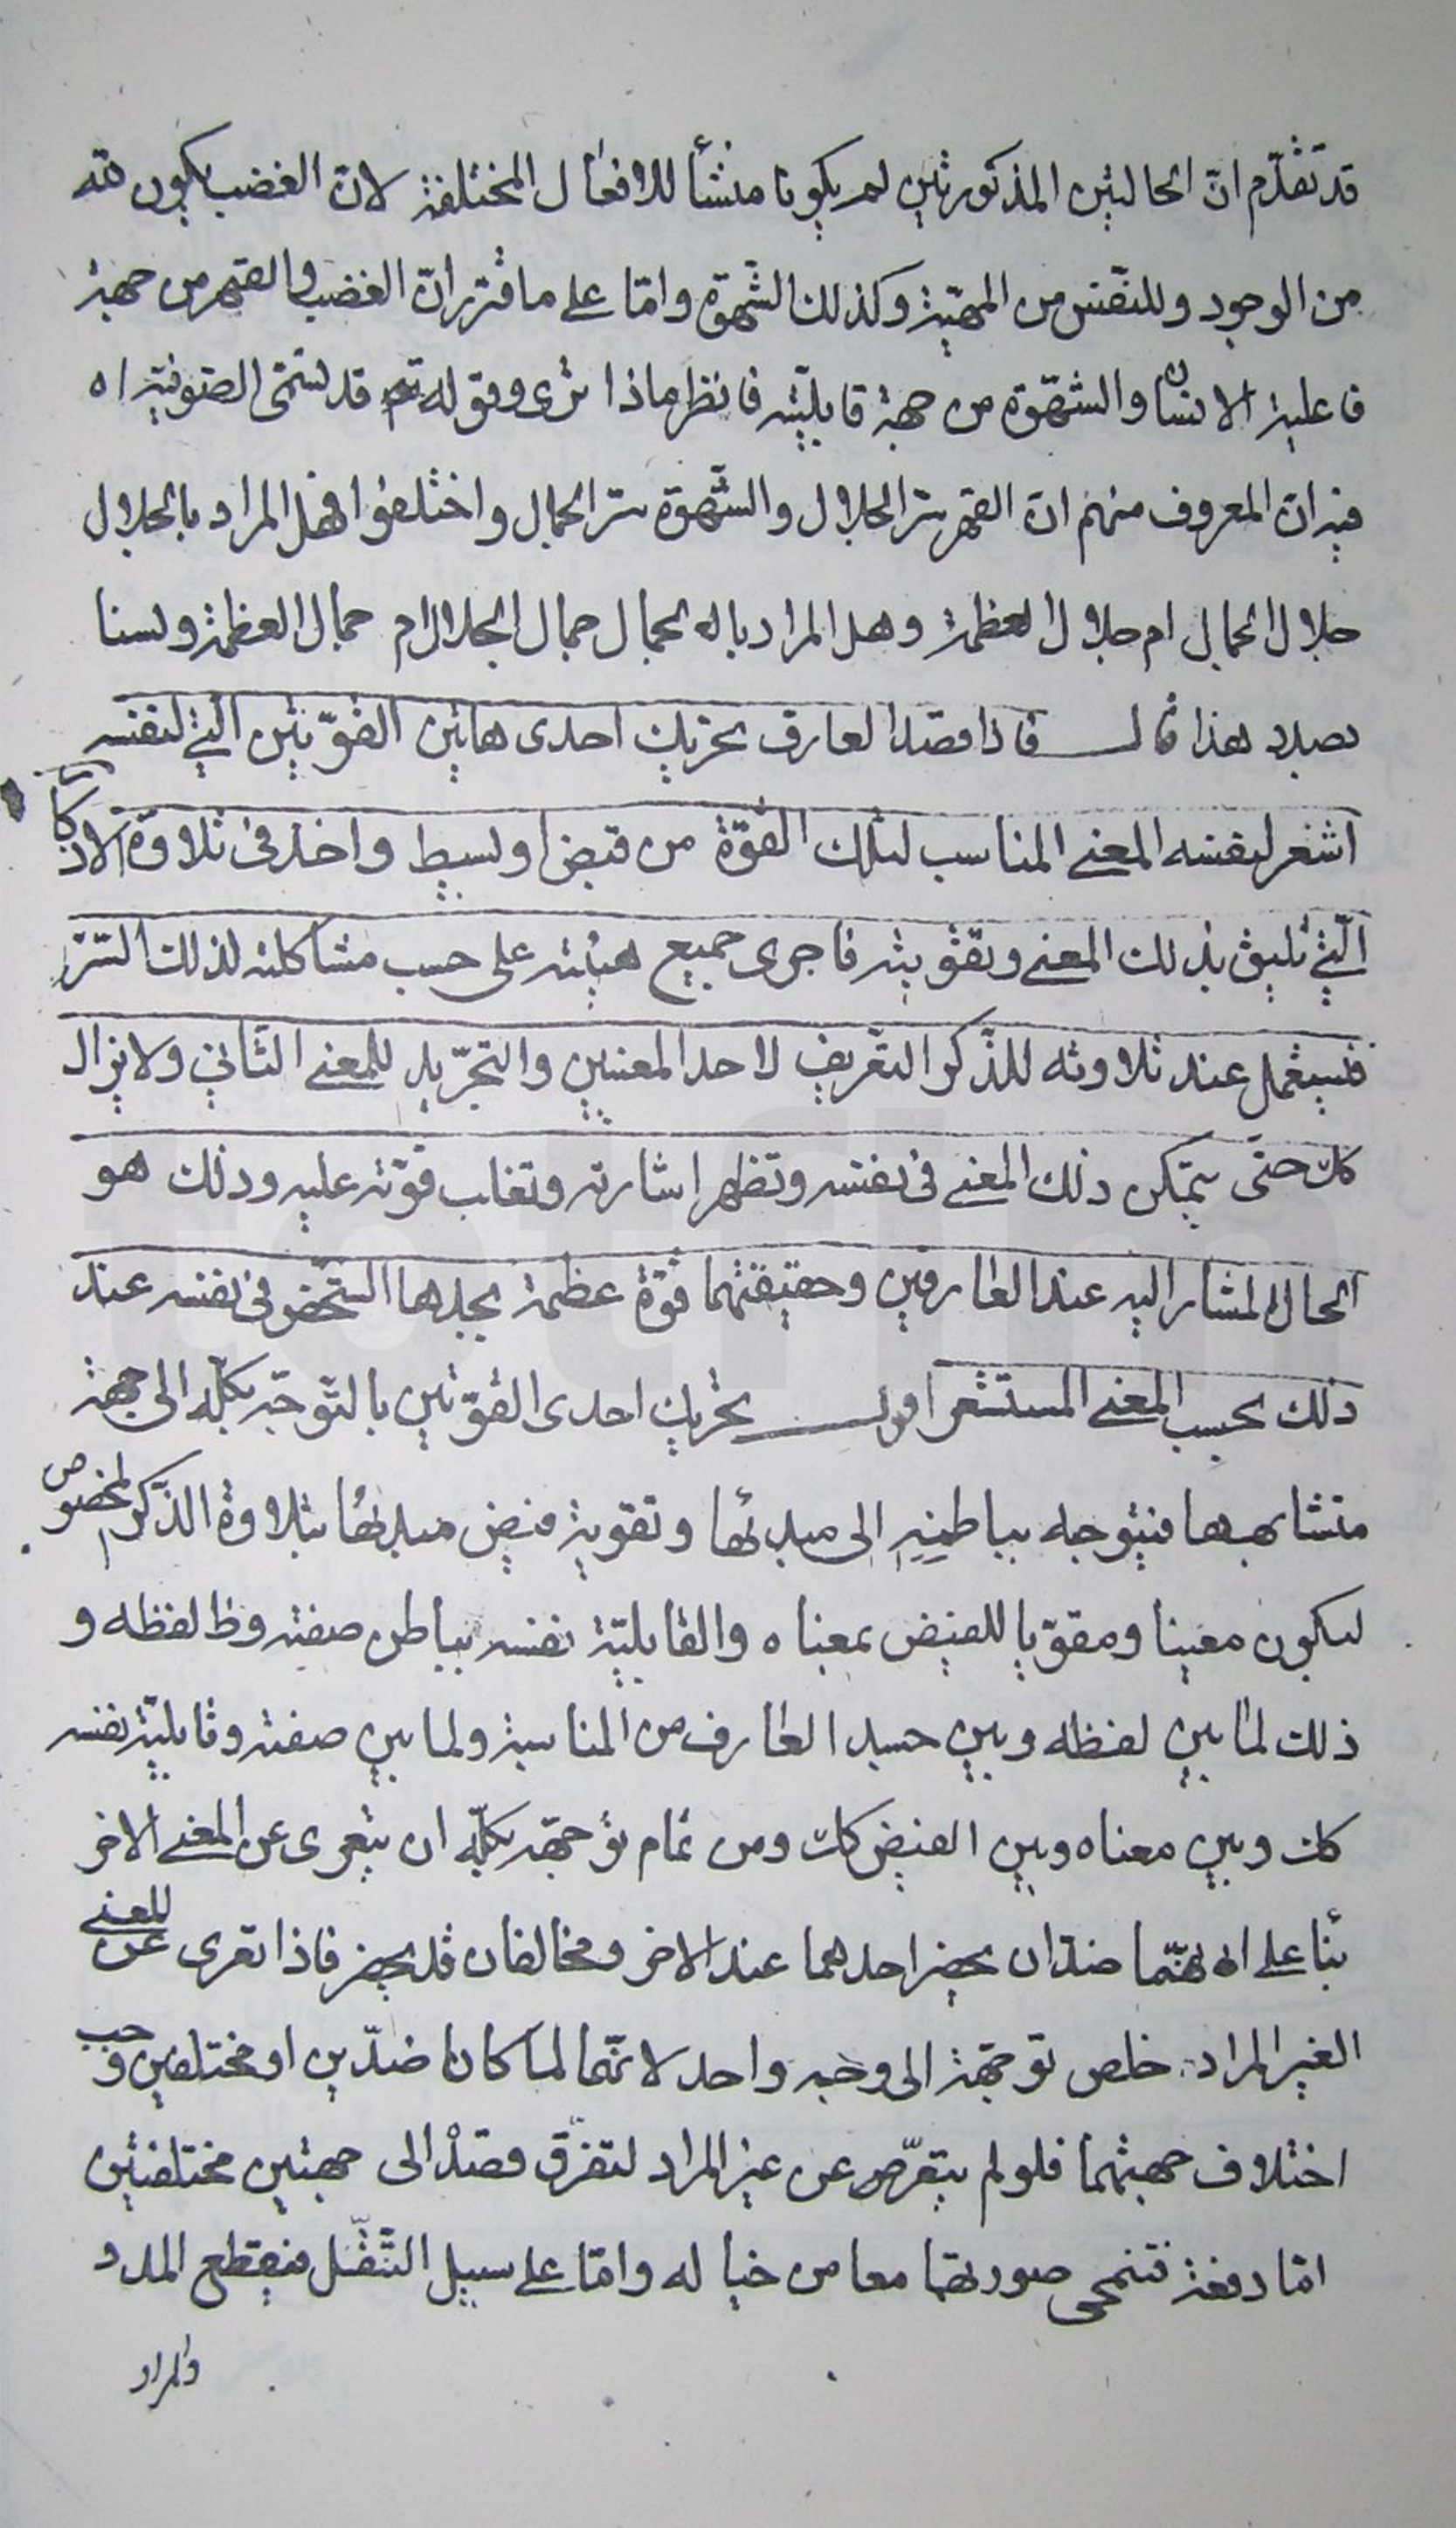 قد تقدّم انّ الحالتين المذكورتين لم يكونا منشأ للافعال المختلفة لانّ الغضب يكون لله
من الوجود وللنفس من المهيّة وكذلك الشّهوة وامّا على ما قرّر انّ الغضب والقهر من جهة
فاعلية الانسان والشّهوة من جهة قابليّته فانظر ماذا ترى وقوله قد تسمّى الصّوفية اه
فيه انّ المعروف منهم انّ القهر سرّ الجلال والشّهوة سرّ الجمال واختلفوا فهل المراد بالجلال
جلال الجمال ام جلال العظمة وهل المراد بالجمال جمال الجلال ام جمال العظمة ولسنا
بصدد هذا قال فاذا قصد العارف تحريك احدى هاتين القوّتين الّتي لنفسه
اشعر لنفسه المعنى المناسب لتلك القوّة من قبض او بسط واخذ في تلاوة الاذكار
الّتي تليق بذلك المعنى وتقويته فاجرى جميع هيئته على حسب مشاكلته لذلك السّرّ
فيستعمل عند تلاوته للذّكر التعريف لاحد المعنيين والتجريد للمعنى الثاني ولا يزال
كك حتّى يتمكن ذلك المعنى في نفسه وتظهر اشارته وتغلب قوّته عليه وذلك هو
الحال المشار اليه عند العارفين وحقيقتهما قوّة عظمة يجدها الشخص في نفسه عند
ذلك بحسب المعنى المستشعر اقول تحريك احدى القوّتين بالتوجّه بكلّه الى جهة
متشابهها فيتوجه بباطنه الى مبدئها وتقوية فيض مبدئها بتلاوة الذّكر المخصوص
ليكون معينا ومقوّيا للفيض بمعناه والقابليّة نفسه بباطن صفته وظ لفظه و
ذلك لما بين لفظه وبين جسد العارف من المناسبة ولما بين صفته وقابليّة نفسه
كك وبين معناه وبين الفيض كك ومن تمام توجّهه بكلّه ان يتعرى عن المعنى الاخر
بنا على انهما ضدّان يحضر احدهما عند الاخر ومخالفان قد يحضر فاذا تعرى عن المعنى
الغير المراد خلص توجّهه الى وجه واحد لانّهما لما كانا ضدّين او مختلفين وجب
اختلاف جهتهما فلو لم يتعرّ عن غير المراد لتفرّق قصده الى جهتين مختلفتين
امّا دفعة فتنمحى صورتهما معا من خياله وامّا على سبيل التنقّل فينقطع المدد
والمراد